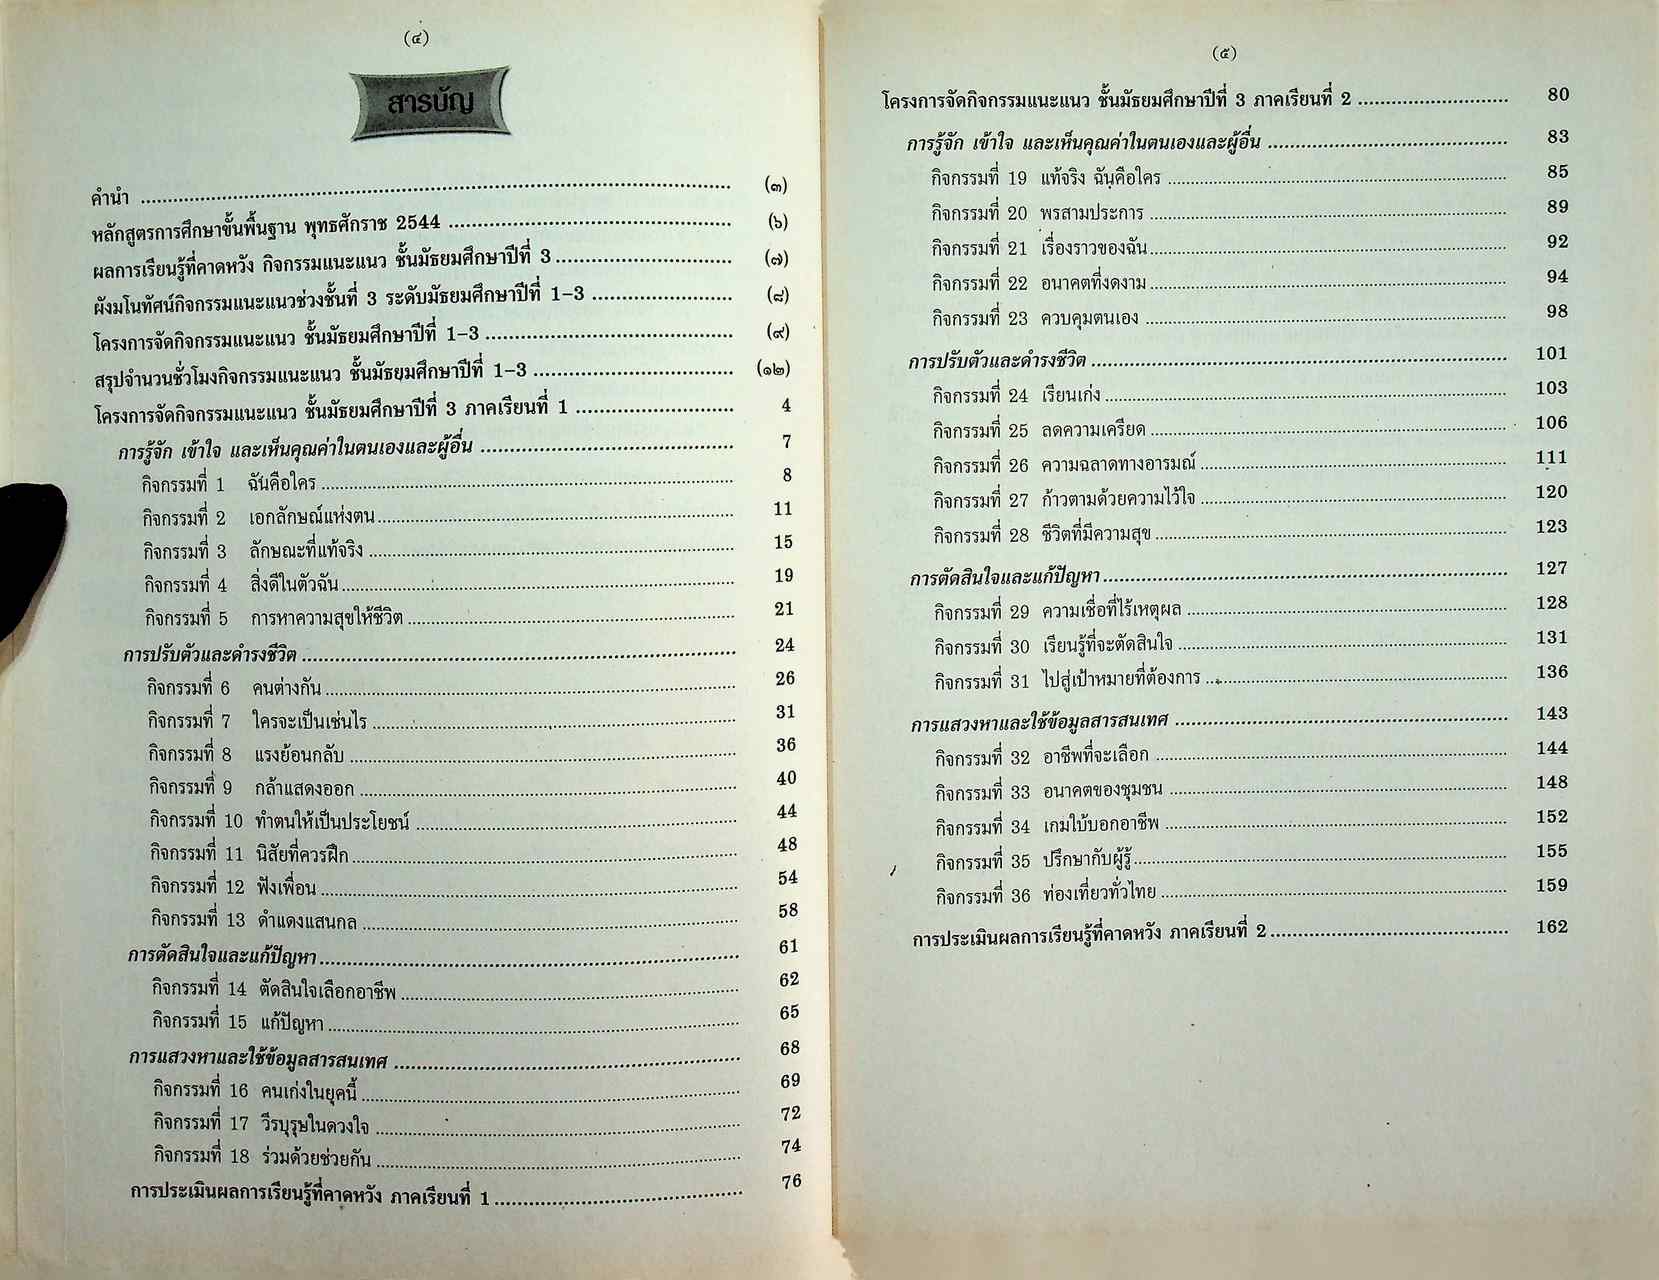 (๔)
สารบัญ
คำนำ ........ (๓)
หลักสูตรการศึกษาขั้นพื้นฐาน พุทธศักราช 2544 ........ (๖)
ผลการเรียนรู้ที่คาดหวัง กิจกรรมแนะแนว ชั้นมัธยมศึกษาปีที่ 3 ........ (๗)
ผังมโนทัศน์กิจกรรมแนะแนวช่วงชั้นที่ 3 ระดับมัธยมศึกษาปีที่ 1-3 ........ (๘)
โครงการจัดกิจกรรมแนะแนว ชั้นมัธยมศึกษาปีที่ 1-3 ........ (๙)
สรุปจำนวนชั่วโมงกิจกรรมแนะแนว ชั้นมัธยมศึกษาปีที่ 1-3 ........ (๑๒)
โครงการจัดกิจกรรมแนะแนว ชั้นมัธยมศึกษาปีที่ 3 ภาคเรียนที่ 1 ........ 4
การรู้จัก เข้าใจ และเห็นคุณค่าในตนเองและผู้อื่น ........ 7
กิจกรรมที่ 1 ฉันคือใคร ........ 8
กิจกรรมที่ 2 เอกลักษณ์แห่งตน ........ 11
กิจกรรมที่ 3 ลักษณะที่แท้จริง ........ 15
กิจกรรมที่ 4 สิ่งดีในตัวฉัน ........ 19
กิจกรรมที่ 5 การหาความสุขให้ชีวิต ........ 21
การปรับตัวและดำรงชีวิต ........ 24
กิจกรรมที่ 6 คนต่างกัน ........ 26
กิจกรรมที่ 7 ใครจะเป็นเช่นไร ........ 31
กิจกรรมที่ 8 แรงย้อนกลับ ........ 36
กิจกรรมที่ 9 กล้าแสดงออก ........ 40
กิจกรรมที่ 10 ทำตนให้เป็นประโยชน์ ........ 44
กิจกรรมที่ 11 นิสัยที่ควรฝึก ........ 48
กิจกรรมที่ 12 ฟังเพื่อน ........ 54
กิจกรรมที่ 13 ดำแดงแสนกล ........ 58
การตัดสินใจและแก้ปัญหา ........ 61
กิจกรรมที่ 14 ตัดสินใจเลือกอาชีพ ........ 62
กิจกรรมที่ 15 แก้ปัญหา ........ 65
การแสวงหาและใช้ข้อมูลสารสนเทศ ........ 68
กิจกรรมที่ 16 คนเก่งในยุคนี้ ........ 69
กิจกรรมที่ 17 วีรบุรุษในดวงใจ ........ 72
กิจกรรมที่ 18 ร่วมด้วยช่วยกัน ........ 74
การประเมินผลการเรียนรู้ที่คาดหวัง ภาคเรียนที่ 1 ........ 76
(๕)
โครงการจัดกิจกรรมแนะแนว ชั้นมัธยมศึกษาปีที่ 3 ภาคเรียนที่ 2 ........ 80
การรู้จัก เข้าใจ และเห็นคุณค่าในตนเองและผู้อื่น ........ 83
กิจกรรมที่ 19 แท้จริง ฉันคือใคร ........ 85
กิจกรรมที่ 20 พรสามประการ ........ 89
กิจกรรมที่ 21 เรื่องราวของฉัน ........ 92
กิจกรรมที่ 22 อนาคตที่งดงาม ........ 94
กิจกรรมที่ 23 ควบคุมตนเอง ........ 98
การปรับตัวและดำรงชีวิต ........ 101
กิจกรรมที่ 24 เรียนเก่ง ........ 103
กิจกรรมที่ 25 ลดความเครียด ........ 106
กิจกรรมที่ 26 ความฉลาดทางอารมณ์ ........ 111
กิจกรรมที่ 27 ก้าวตามด้วยความไว้ใจ ........ 120
กิจกรรมที่ 28 ชีวิตที่มีความสุข ........ 123
การตัดสินใจและแก้ปัญหา ........ 127
กิจกรรมที่ 29 ความเชื่อที่ไร้เหตุผล ........ 128
กิจกรรมที่ 30 เรียนรู้ที่จะตัดสินใจ ........ 131
กิจกรรมที่ 31 ไปสู่เป้าหมายที่ต้องการ ........ 136
การแสวงหาและใช้ข้อมูลสารสนเทศ ........ 143
กิจกรรมที่ 32 อาชีพที่จะเลือก ........ 144
กิจกรรมที่ 33 อนาคตของชุมชน ........ 148
กิจกรรมที่ 34 เกมใบ้บอกอาชีพ ........ 152
กิจกรรมที่ 35 ปรึกษากับผู้รู้ ........ 155
กิจกรรมที่ 36 ท่องเที่ยวทั่วไทย ........ 159
การประเมินผลการเรียนรู้ที่คาดหวัง ภาคเรียนที่ 2 ........ 162